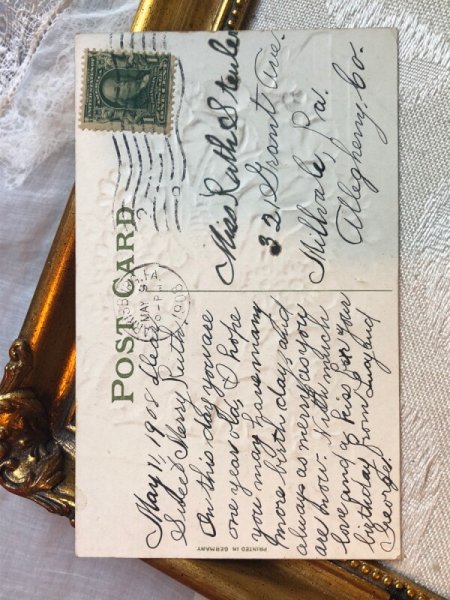 POST CARD
MAY 9
6-PM
1908
Miss Ruth Steuler
32 Grant Ave.
Millvale, Pa.
Allegheny. Co.
May 11, 1908
Sweet Merry Ruth.
On this day you are
one year old, I hope
you may have many
more birth days, and
always as merry as you
are now. With much
love and a kiss on your
birthday from
George.
PRINTED IN GERMANY